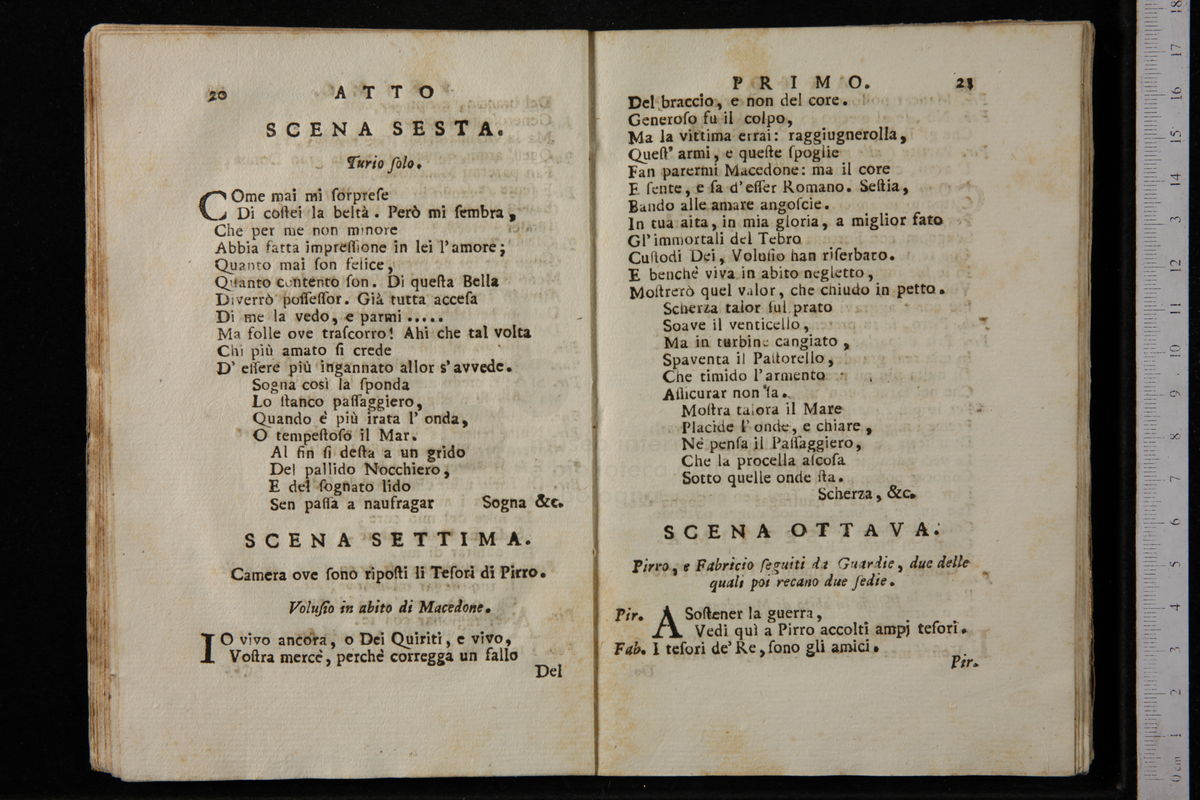 20 ATTO
SCENA SESTA.
Turio ſolo.
COme mai mi ſorpreſe
Di coſtei la beltà. Però mi ſembra,
Che per me non minore
Abbia fatta impreſſione in lei l'amore;
Quanto mai ſon felice,
Quanto contento ſon. Di queſta Bella
Diverrò poſſeſſor. Già tutta acceſa
Di me la vedo, e parmi.....
Ma folle ove traſcorro! Ahi che tal volta
Chi più amato ſi crede
D' eſſere più ingannato allor s'avvede.
Sogna così la ſponda
Lo ſtanco paſſaggiero,
Quando è più irata l' onda,
O tempeſtoſo il Mar.
Al fin ſi deſta a un grido
Del pallido Nocchiero,
E del ſognato lido
Sen paſſa a naufragar Sogna &c.
SCENA SETTIMA.
Camera ove ſono ripoſti li Teſori di Pirro.
Voluſio in abito di Macedone.
IO vivo ancora, o Dei Quiriti, e vivo,
Voſtra mercè, perchè corregga un fallo
Del
PRIMO. 21
Del braccio, e non del core.
Generoſo fu il colpo,
Ma la vittima errai: raggiugnerolla,
Queſt' armi, e queſte ſpoglie
Fan parermi Macedone: ma il core
E ſente, e ſa d'eſſer Romano. Seſtia,
Bando alle amare angoſcie.
In tua aita, in mia gloria, a miglior fato
Gl'immortali del Tebro
Cuſtodi Dei, Voluſio han riſerbato.
E benchè viva in abito negletto,
Moſtrerò quel valor, che chiudo in petto.
Scherza talor ſul prato
Soave il venticello,
Ma in turbine cangiato,
Spaventa il Paſtorello,
Che timido l'armento
Aſſicurar non ſa.
Moſtra talora il Mare
Placide l' onde, e chiare,
Nè penſa il Paſſaggiero,
Che la procella aſcoſa
Sotto quelle onde ſta.
Scherza, &c.
SCENA OTTAVA.
Pirro, e Fabricio ſeguiti da Guardie, due delle
quali poi recano due ſedie.
Pir. A Soſtener la guerra,
Vedi quì a Pirro accolti ampj teſori.
Fab. I teſori de' Re, ſono gli amici.
Pir.
0 cm 1 2 3 4 5 6 7 8 9 10 11 12 13 14 15 16 17 18